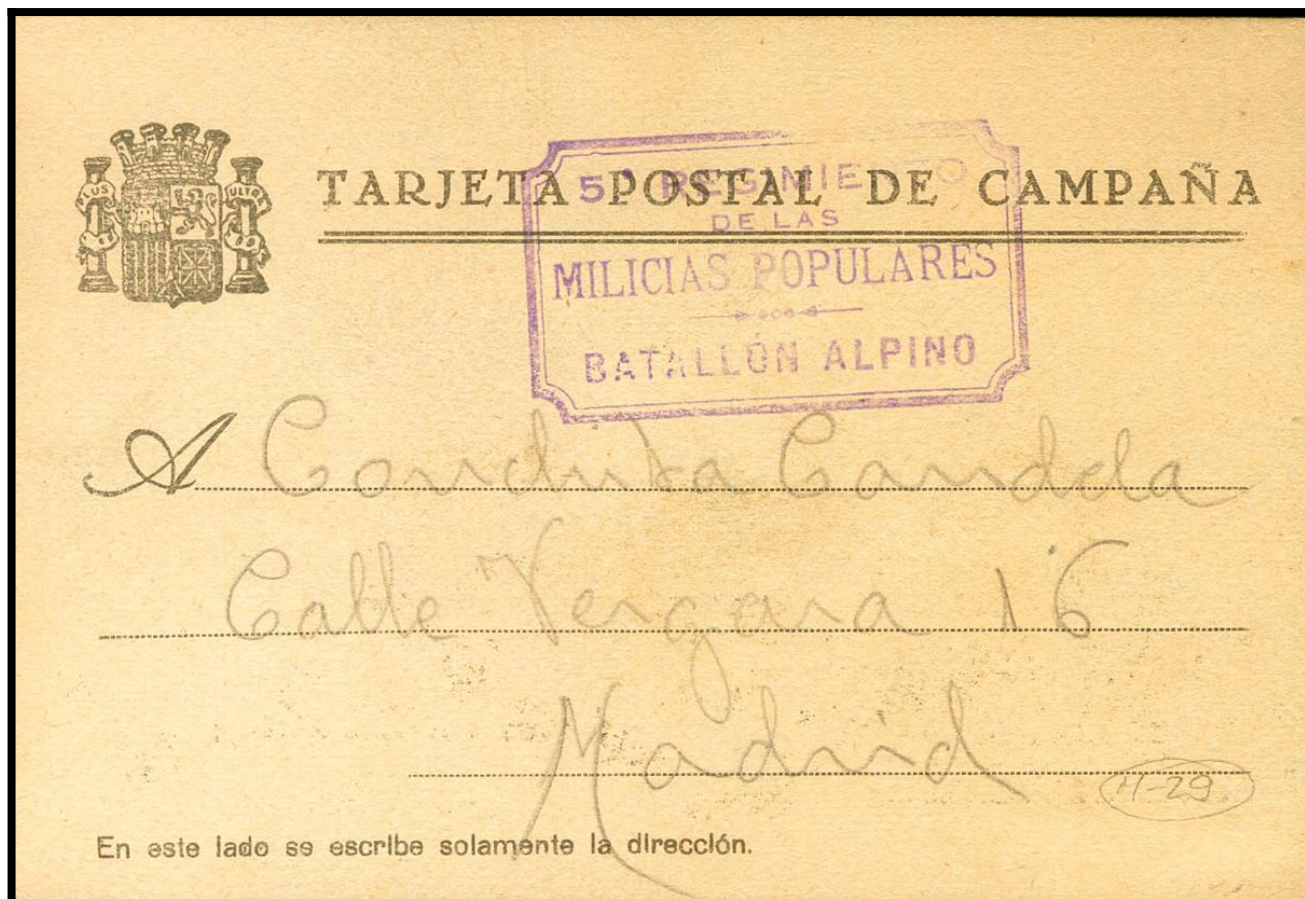 PLUS ULTRA
TARJETA POSTAL DE CAMPAÑA
5º REGIMIENTO
DE LAS
MILICIAS POPULARES
BATALLÓN ALPINO
A Conchita Candela
Calle Vergara 16
Madrid
En este lado se escribe solamente la dirección.